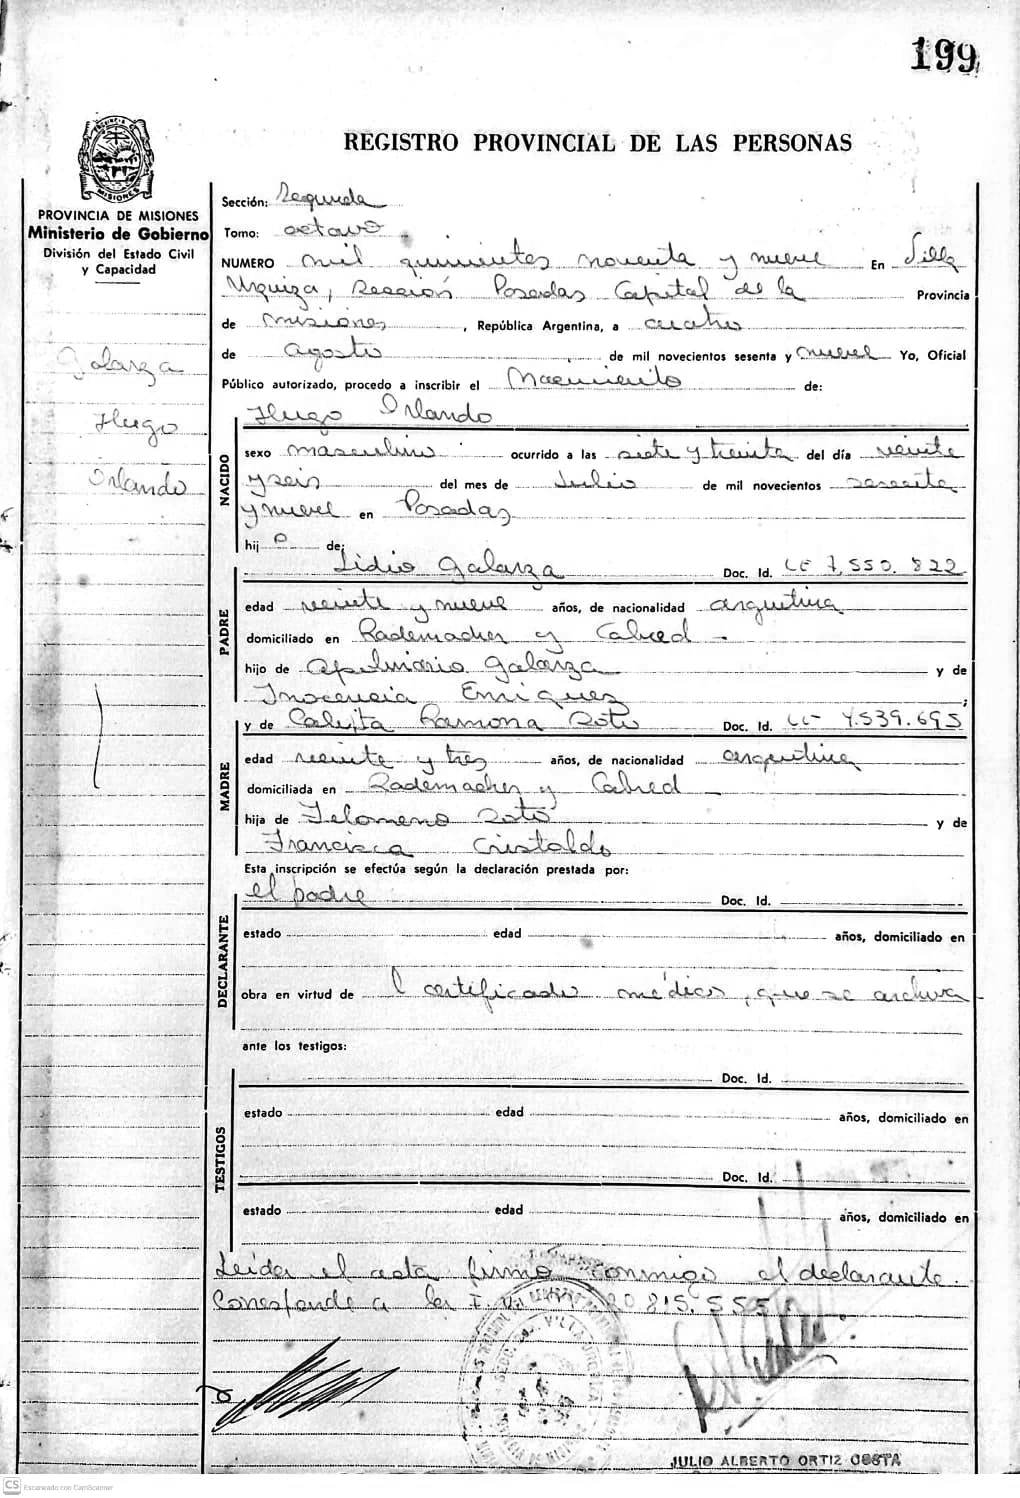 199
REGISTRO PROVINCIAL DE LAS PERSONAS
PROVINCIA DE MISIONES
Ministerio de Gobierno
División del Estado Civil
y Capacidad
Galarza
Hugo
Orlando
Sección: Segunda
Tomo: octavo
NUMERO mil quinientos noventa y nueve En Villa
Urquiza, Sección Posadas Capital de la Provincia
de misiones, República Argentina, a cuatro
de agosto de mil novecientos sesenta y nueve Yo, Oficial
Público autorizado, procedo a inscribir el Nacimiento de:
Hugo Orlando
NACIDO
sexo masculino ocurrido a las siete y treinta del día veinte
y seis del mes de Julio de mil novecientos sesenta
y nueve en Posadas
hij o de:
Lidio Galarza Doc. Id. LE 7.550.822
PADRE
edad veinte y nueve años, de nacionalidad argentina
domiciliado en Rademacher y Cabred
hijo de Apolinario Galarza y de
Inocencia Enriquez;
y de Ramona Soto Doc. Id. 4.539.695
MADRE
edad veinte y tres años, de nacionalidad argentina
domiciliada en Rademacher y Cabred
hija de Filomeno Soto y de
Francisca Cristaldo
Esta inscripción se efectúa según la declaración prestada por:
el padre Doc. Id.
DECLARANTE
estado edad años, domiciliado en
obra en virtud de l certificado médico, que se archiva
ante los testigos:
Doc. Id.
TESTIGOS
estado edad años, domiciliado en
Doc. Id.
estado edad años, domiciliado en
Leída el acta firma conmigo el declarante.
Corresponde a la 20.815.555
JULIO ALBERTO ORTIZ COSTA
CS Escaneado con CamScanner